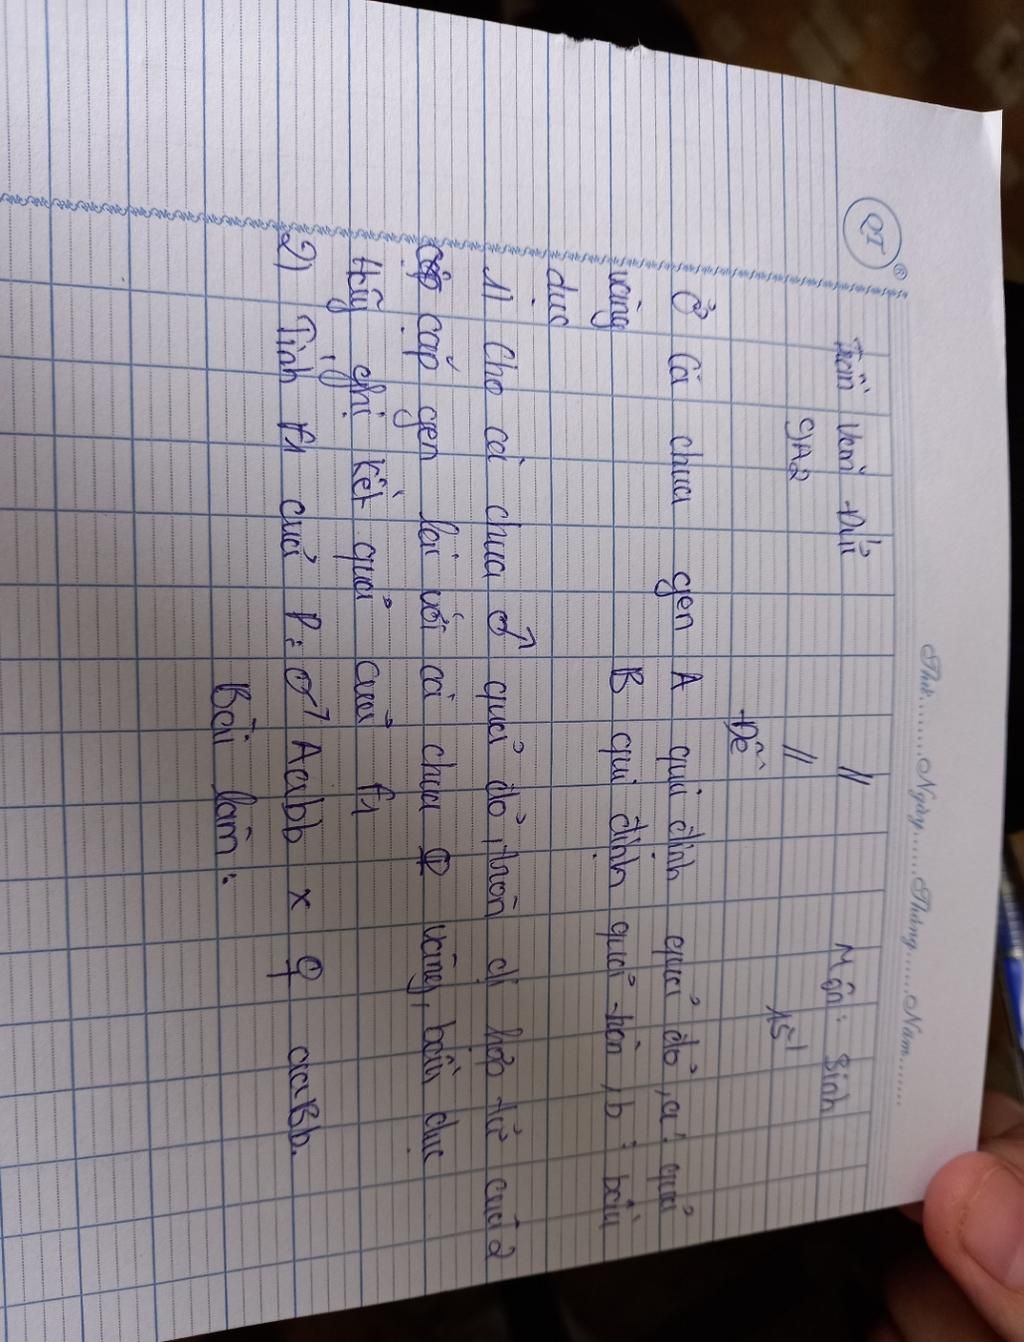 QT ®
Thứ.........Ngày.......Tháng.......Năm.........
Trần Văn Môn: Sinh
9A2 // 15'
Đề
Ở Cà chua gen A qui định quả đỏ, a: quả
vàng B qui định quả tròn, b: bầu
dục
1) Cho cà chua ♂ quả đỏ, tròn dị hợp tử của 2
cặp gen lai với cà chua ♀ vàng, bầu dục
Hãy ghi kết quả của F1
2) Tính F1 của P: ♂ Aabb x ♀ aaBb.
Bài làm: